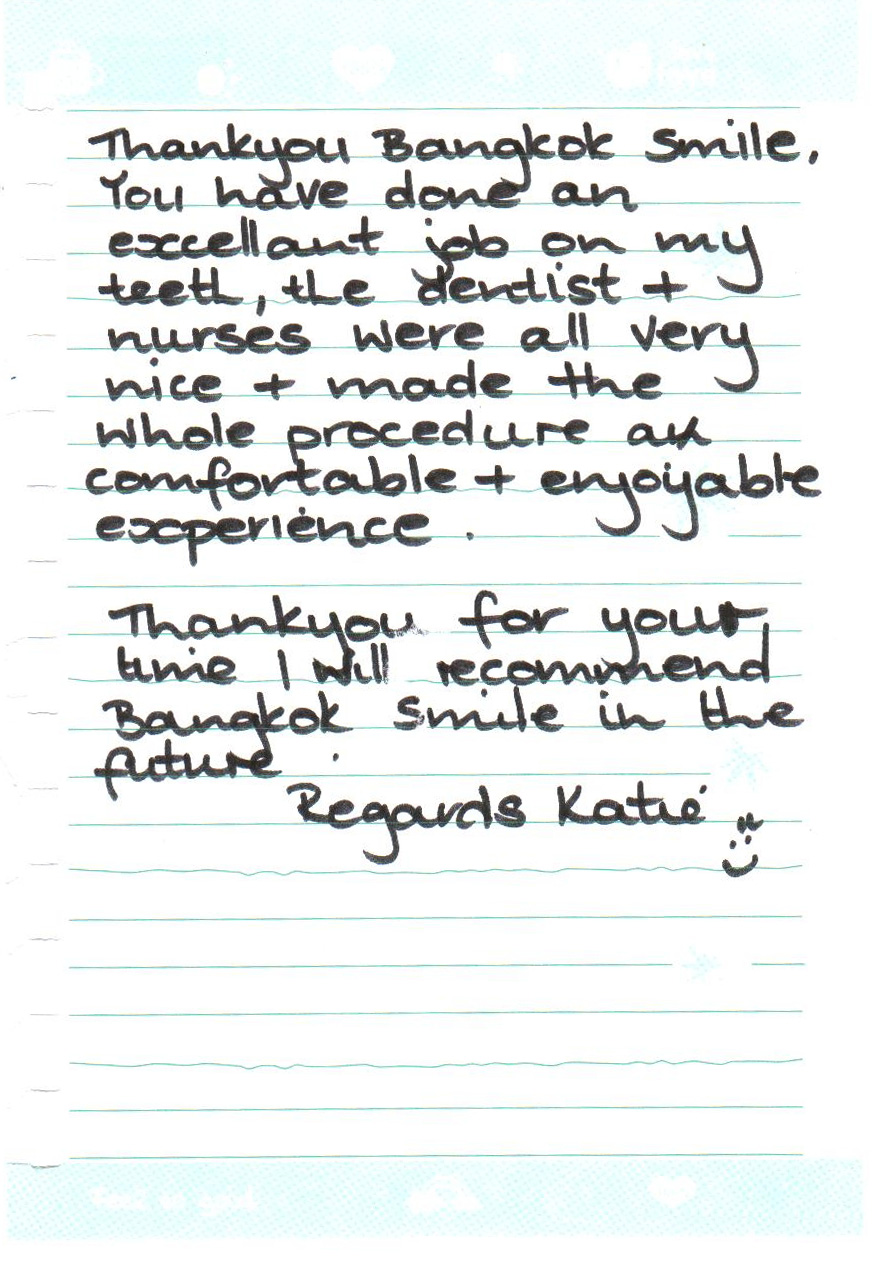 Thankyou Bangkok Smile,
You have done an
excellant job on my
teeth, the dentist +
nurses were all very
nice + made the
whole procedure an
comfortable + enjoyable
experience.
Thankyou for your
time I will recommend
Bangkok Smile in the
future.
Regards Katie